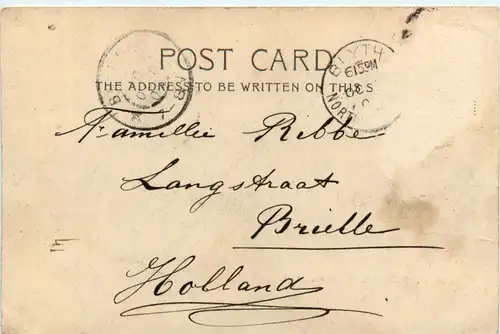 POST CARD
THE ADDRESS TO BE WRITTEN ON THIS S
BLYTH
NORT
Famillie Ribbe
Langstraat
Brielle
Holland